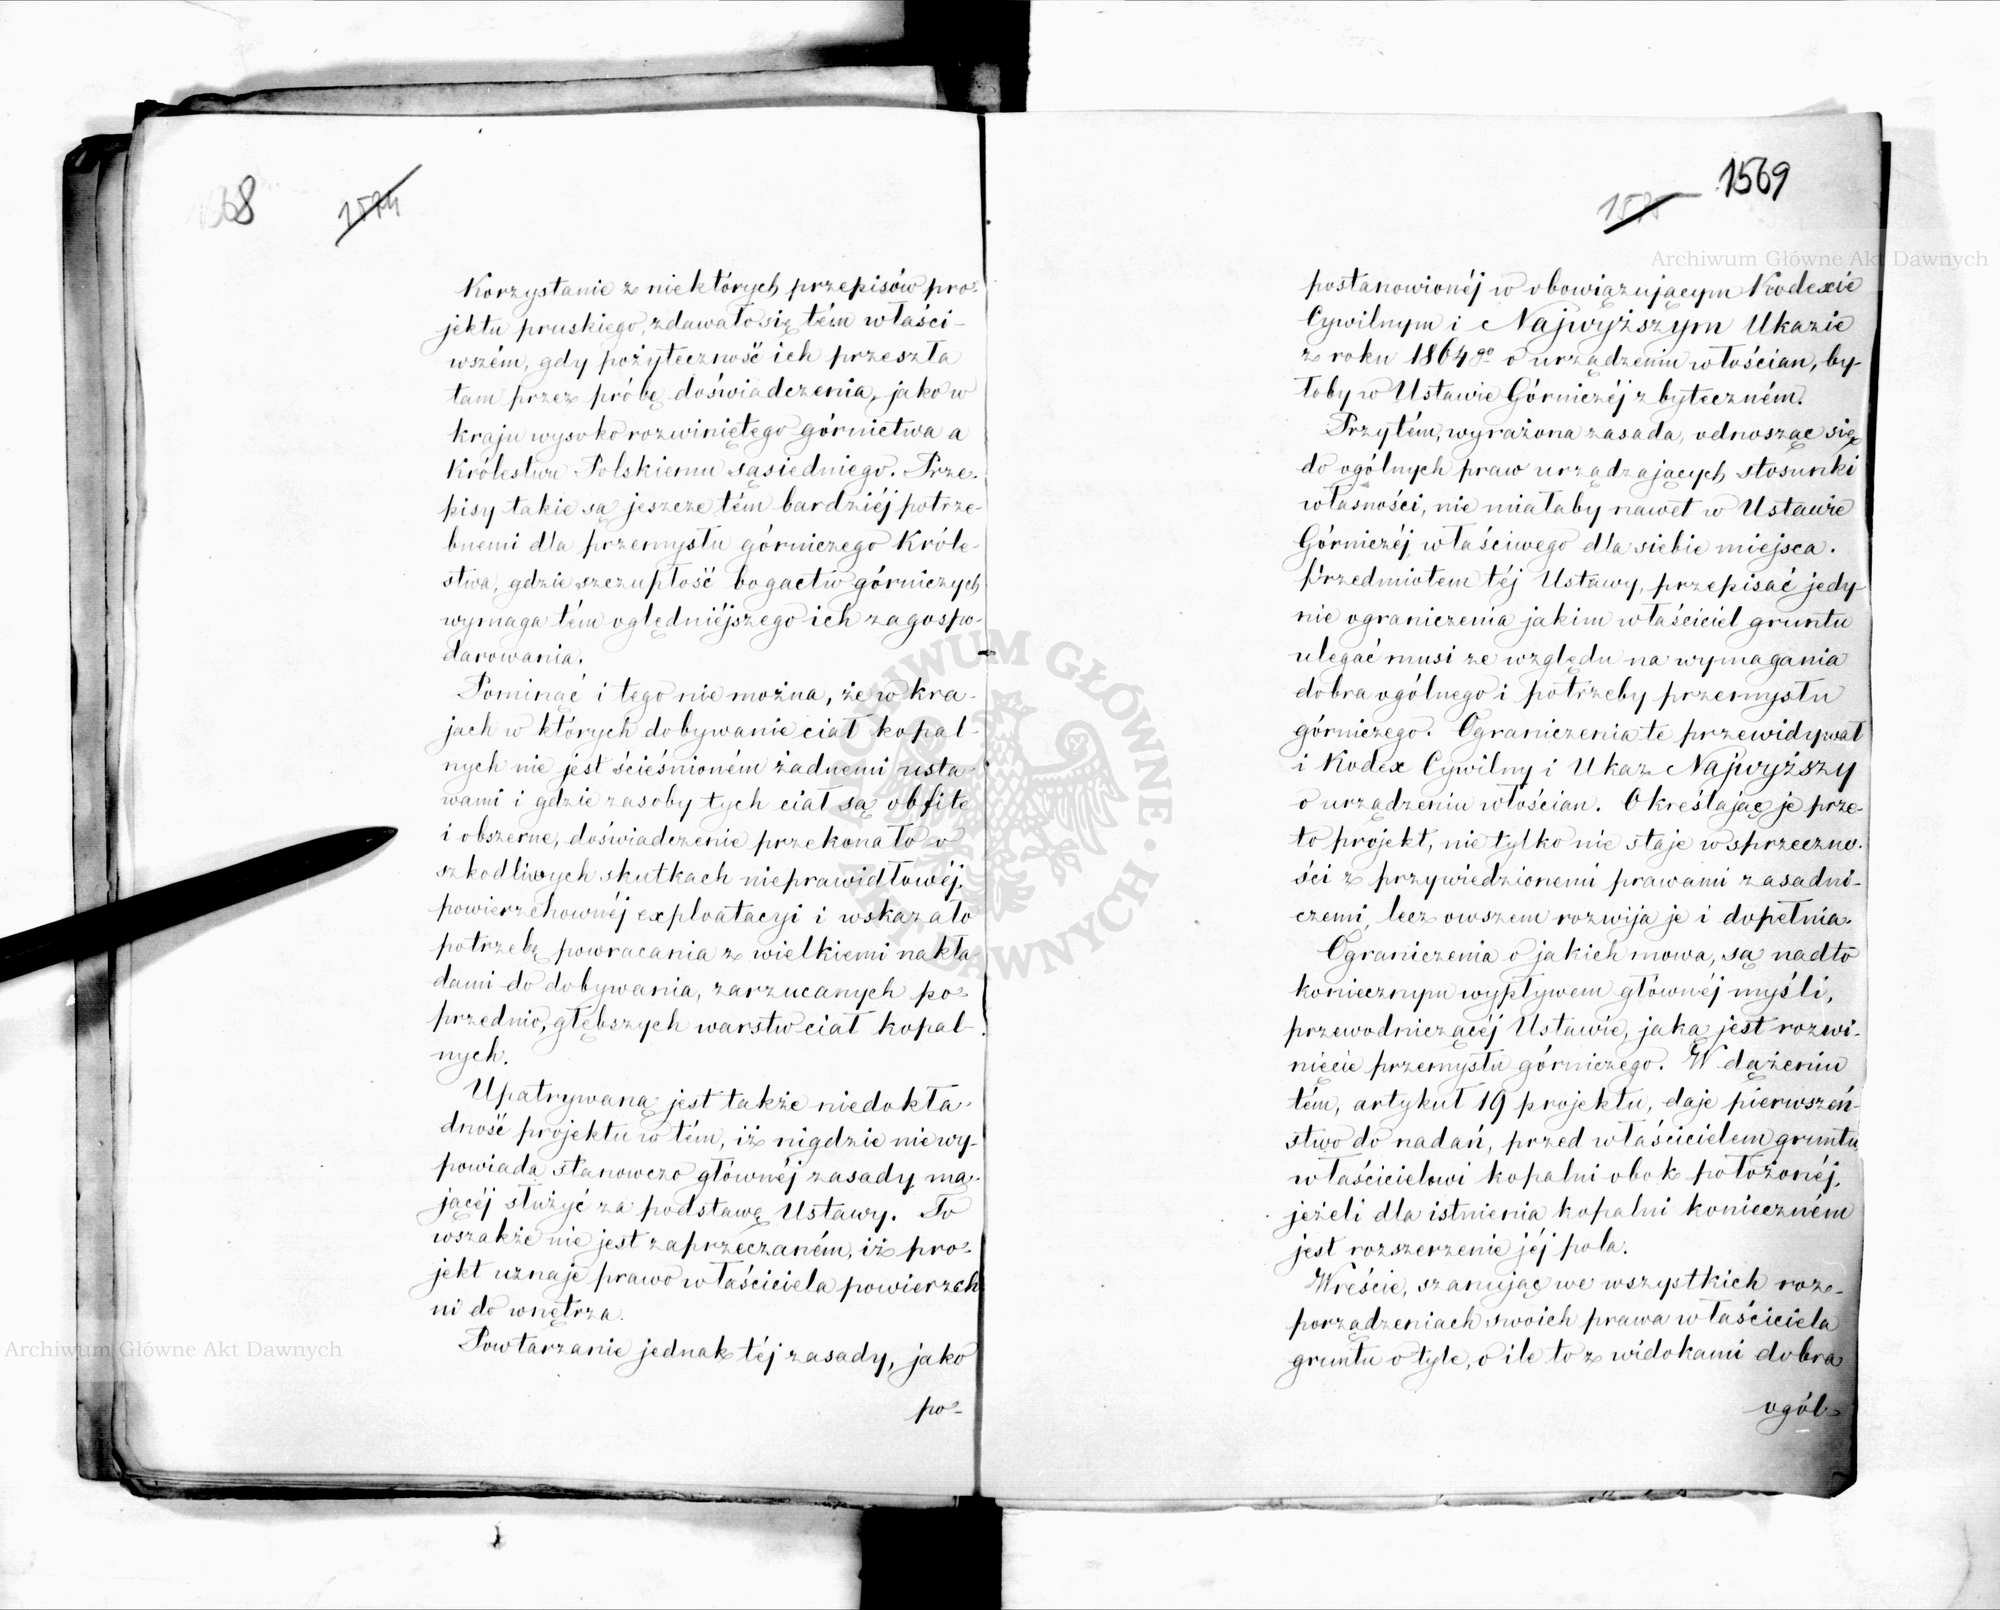 1568
1574
Korzystanie z niektórych przepisów pro-
jektu pruskiego, zdawało się tém właści-
wszém, gdy pożyteczność ich przeszła
tam przez próbę doświadczenia, jako w
kraju wysoko rozwiniętego górnictwa a
Królestwu Polskiemu sąsiedniego. Prze-
pisy takie są jeszcze tém bardziéj potrze-
bnemi dla przemysłu górniczego Króle-
stwa, gdzie szczupłość bogactw górniczych
wymaga tém oględniéjszego ich zagospo-
darowania.
Pominąć i tego nie można, że w kra-
jach w których dobywanie ciał kopal-
nych nie jest ścieśnioném żadnemi usta-
wami i gdzie zasoby tych ciał są obfite
i obszerne, doświadczenie przekonało o
szkodliwych skutkach nieprawidłowéj,
powierzchownéj exploatacyi i wskazało
potrzebę powracania z wielkiemi nakła-
dami do dobywania, zarzucanych po-
przednio, głębszych warstw ciał kopal-
nych.
Upatrywaną jest także niedokła-
dność projektu w tém, iż nigdzie niewy-
powiada stanowczo głównéj zasady ma-
jącéj służyć za podstawę Ustawy. To
wszakże nie jest zaprzeczaném, iż pro-
jekt uznaje prawo właściciela powierzch
ni do wnętrza.
Powtarzanie jednak téj zasady, jako
po-
1569
postanowionéj w obowiązującym Kodexie
Cywilnym i Najwyższym Ukazie
z roku 1864go o urządzeniu włościan, by-
łoby w Ustawie Górniczéj zbyteczném.
Przytém, wyrażona zasada, odnosząc się
do ogólnych praw urządzających stosunki
własności, nie miałaby nawet w Ustawie
Górniczéj właściwego dla siebie miejsca.
Przedmiotem téj Ustawy, przepisać jedy-
nie ograniczenia jakim właściciel gruntu
ulegać musi ze względu na wymagania
dobra ogólnego i potrzeby przemysłu
górniczego. Ograniczenia te przewidywał
i Kodex Cywilny i Ukaz Najwyższy
o urządzeniu włościan. Określając je prze-
to projekt, nie tylko nie staje w sprzeczno-
ści z przywiedzionemi prawami zasadni-
czemi, lecz owszem rozwija je i dopełnia.
Ograniczenia o jakich mowa, są nadto
koniecznym wypływem głównéj myśli,
przewodniczącéj Ustawie, jaką jest rozwi-
nięcie przemysłu górniczego. W dążeniu
tém, artykuł 19 projektu, daje pierwszeń-
stwo do nadań, przed właścicielem gruntu
właścicielowi kopalni obok położonéj,
jeżeli dla istnienia kopalni konieczném
jest rozszerzenie jéj pola.
Wreście, szanując we wszystkich roz-
porządzeniach swoich prawa właściciela
gruntu o tyle, o ile to z widokami dobra
ogól-
Archiwum Główne Akt Dawnych
Archiwum Główne Akt Dawnych
ARCHIWUM GŁÓWNE AKT DAWNYCH